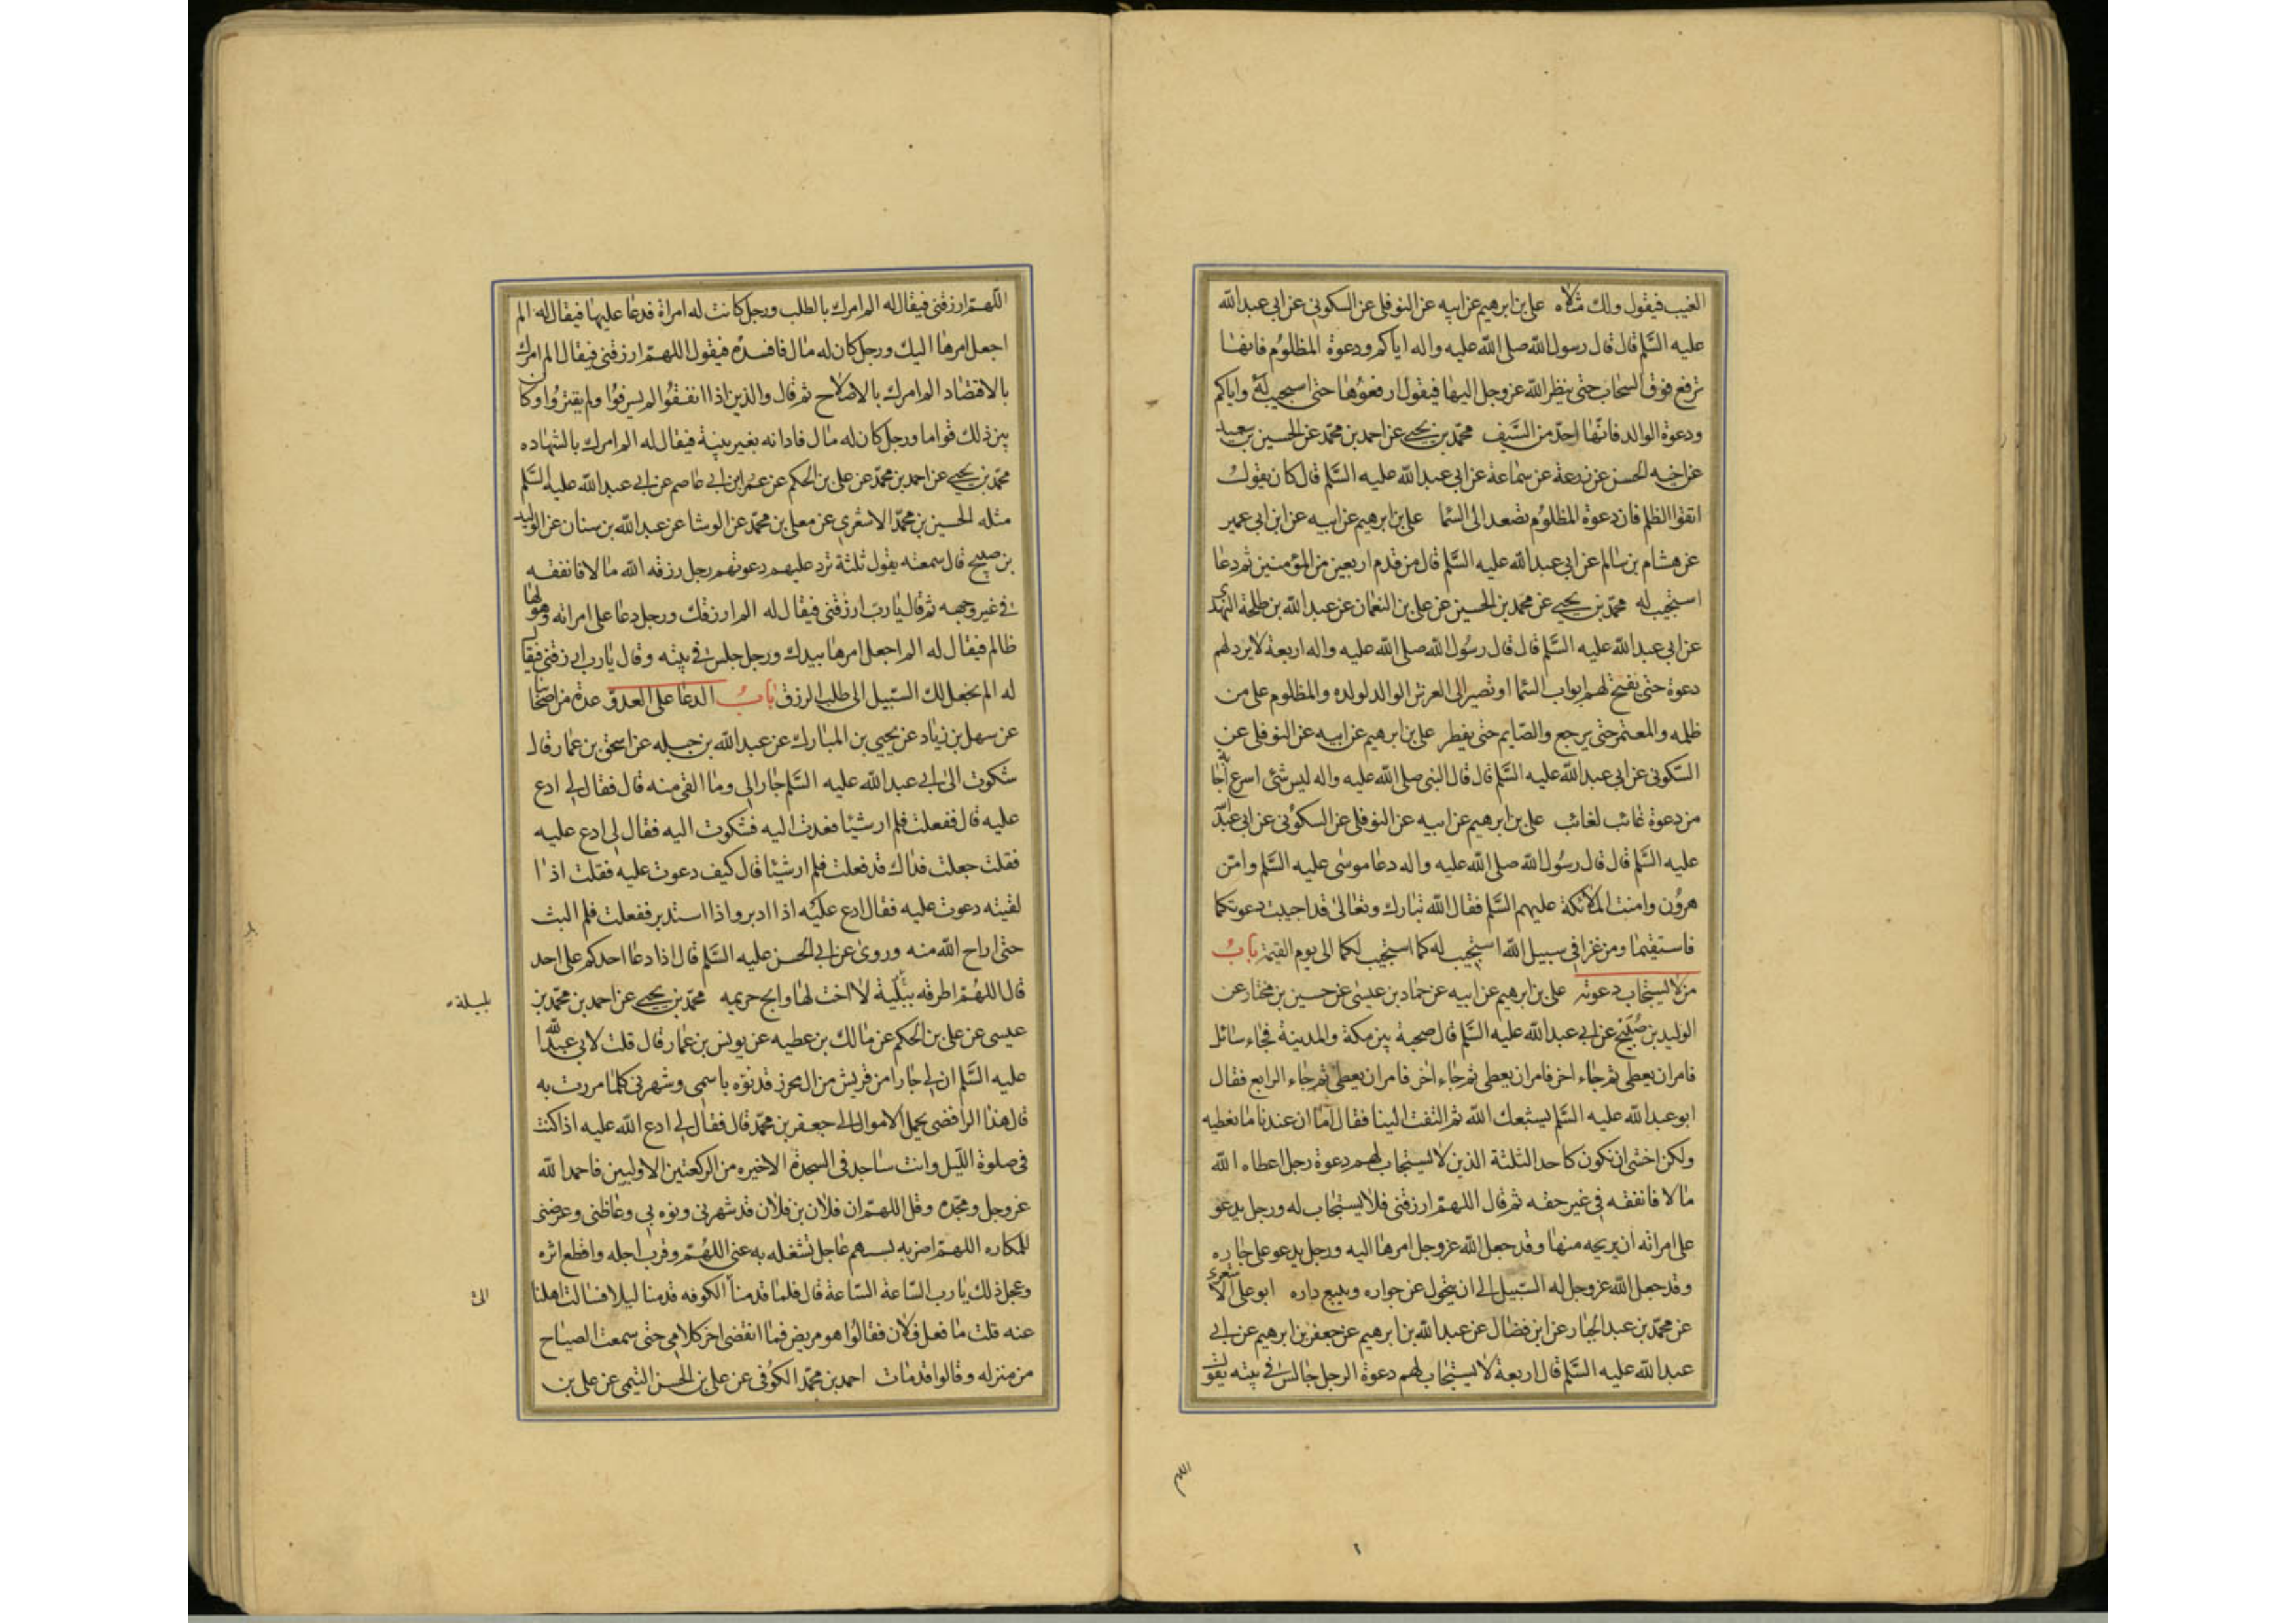 الغيب فيقول ولك مثلاه علي بن ابرهيم عن ابيه عن النوفلي عن السكوني عن ابي عبد الله
عليه السَّلم قال قال رسول الله صلى الله عليه واله اياكم ودعوة المظلوم فانها
ترفع فوق السحاب حتى ينظر الله عز وجل اليها فيقول ارفعوها حتى استجيب له واياكم
ودعوة الوالد فانها احدّ من السَّيف محمّد بن يحيى عن احمد بن محمّد عن الحسين بن سعيد
عن اخيه الحسن عن زرعة عن سماعة عن ابي عبد الله عليه السَّلم قال كان يقول
اتقوا الظلم فان دعوة المظلوم تصعد الى السَّما علي بن ابرهيم عن ابيه عن ابن ابي عمير
عن هشام بن سالم عن ابي عبد الله عليه السَّلم قال من قدم اربعين من المؤمنين ثم دعا
استجيب له محمّد بن يحيى عن محمد بن الحسين عن علي بن النعمان عن عبد الله بن طلحة النهدي
عن ابي عبد الله عليه السَّلم قال قال رسول الله صلى الله عليه واله اربعة لا يرد لهم
دعوة حتى يفتح لهم ابواب السَّما او تصير الى العرش الوالد لولده والمظلوم على من
ظلمه والمعتمر حتى يرجع والصّايم حتى يفطر علي بن ابرهيم عن ابيه عن النوفلي عن
السّكوني عن ابي عبد الله عليه السَّلم قال قال النبي صلى الله عليه واله ليس شئ اسرع اجابة
من دعوة غائب لغائب علي بن ابرهيم عن ابيه عن النوفلي عن السكوني عن ابي عبد الله
عليه السَّلم قال قال رسول الله صلى الله عليه واله دعا موسى عليه السَّلم وامّن
هرون وامنت الملائكة عليهم السَّلم فقال الله تبارك وتعالى قد اجيبت دعوتكما
فاستقيما ومن غزا في سبيل الله استجيب له كما استجيب لكما الى يوم القيمة باب
من لا يستجاب دعوته علي بن ابرهيم عن ابيه عن حماد بن عيسى عن حسين بن مختار عن
الوليد بن صبيح عن ابي عبد الله عليه السَّلم قال صحبة بين مكة والمدينة فجاء سائل
فامر ان يعطى ثم جاء اخر فامر ان يعطى ثم جاء اخر فامر ان يعطى ثم جاء الرابع فقال
ابو عبد الله عليه السَّلم يشبعك الله ثم التفت الينا فقال اما ان عندنا ما نعطيه
ولكن اخشى ان نكون كاحد الثلثة الذين لا يستجاب لهم دعوة رجل اعطاه الله
مالا فانفقه في غير حقه ثم قال اللهمّ ارزقني فلا يستجاب له ورجل يدعو
على امراته ان يريحه منها وقد جعل الله عز وجل امرها اليه ورجل يدعو على جاره
وقد جعل الله عز وجل له السّبيل الى ان يتحول عن جواره ويبيع داره ابو علي الاشعري
عن محمّد بن عبد الجبار عن ابن فضال عن عبد الله بن ابرهيم عن جعفر بن ابرهيم عن ابي
عبد الله عليه السَّلم قال اربعة لا يستجاب لهم دعوة الرجل جالس في بيته يقول
اللهم
اللّهمّ ارزقني فيقال له الم امرك بالطلب ورجل كانت له امراة فدعا عليها فيقال له الم
اجعل امرها اليك ورجل كان له مال فافسده فيقول اللهمّ ارزقني فيقال الم امرك
بالاقتصاد الم امرك بالاصلاح ثم قال والذين اذا انفقوا لم يسرفوا ولم يقتروا وكان
بين ذلك قواما ورجل كان له مال فادانه بغير بينة فيقال له الم امرك بالشهاده
محمّد بن يحيى عن احمد بن محمّد عن علي بن الحكم عن عمر ابن ابي عاصم عن ابي عبد الله عليه السَّلم
مثله الحسين بن محمّد الاشعري عن معلى بن محمّد عن الوشا عن عبد الله بن سنان عن الوليد
بن صبيح قال سمعته يقول ثلثة ترد عليهم دعوتهم رجل رزقه الله مالا فانفقه
في غير وجهه ثم قال يا رب ارزقني فيقال له الم ارزقك ورجل دعا على امراته وهو لها
ظالم فيقال له الم اجعل امرها بيدك ورجل جلس في بيته وقال يا رب ارزقني فيقال
له الم نجعل لك السّبيل الى طلب الرزق باب الدعا على العدو عدة من اصحابنا
عن سهل بن زياد عن يحيى بن المبارك عن عبد الله بن جبله عن اسحق بن عمار قال
شكوت الى ابي عبد الله عليه السَّلم جارا لي وما القى منه قال فقال لي ادع
عليه قال ففعلت فلم ار شيئا فعدت اليه فشكوت اليه فقال لي ادع عليه
فقلت جعلت فداك قد فعلت فلم ار شيئا قال كيف دعوت عليه فقلت اذا
لقيته دعوت عليه فقال ادع عليه اذا ادبر واذا استدبر ففعلت فلم البث
حتى اراح الله منه وروى عن ابي الحسن عليه السَّلم قال اذا دعا احدكم على احد
قال اللهُمّ اطرقه ببَليّة لا اخت لها وابح حريمه محمّد بن يحيى عن احمد بن محمّد بن
بليلة
عيسى عن علي بن الحكم عن مالك بن عطيه عن يونس بن عمار قال قلت لابي عبد الله
عليه السَّلم ان لي جارا من قريش من ال محرز قد نوّه باسمي وشهرني كلما مررت به
قال هذا الرافضي يحمل الاموال الى جعفر بن محمّد قال فقال لي ادع الله عليه اذا كنت
في صلوة اللّيل وانت ساجد في السجدة الاخيره من الركعتين الاوليين فاحمد الله
عز وجل ومجّده وقل اللهمّ ان فلان بن فلان قد شهرني ونوه بي وغاظني وعرضني
للمكاره اللهمّ اضربه بسهم عاجل تشغله به عني اللهُمّ وقرب اجله واقطع اثره
وعجل ذلك يا رب السّاعة السّاعة قال فلما قدمنا الكوفه قدمنا ليلا فسالت اهلنا
عنه قلت ما فعل فلان فقالوا هو مريض فما انقضى اخر كلامي حتى سمعت الصياح
من منزله وقالوا قد مات احمد بن محمّد الكوفي عن علي بن الحسن التيمي عن علي بن